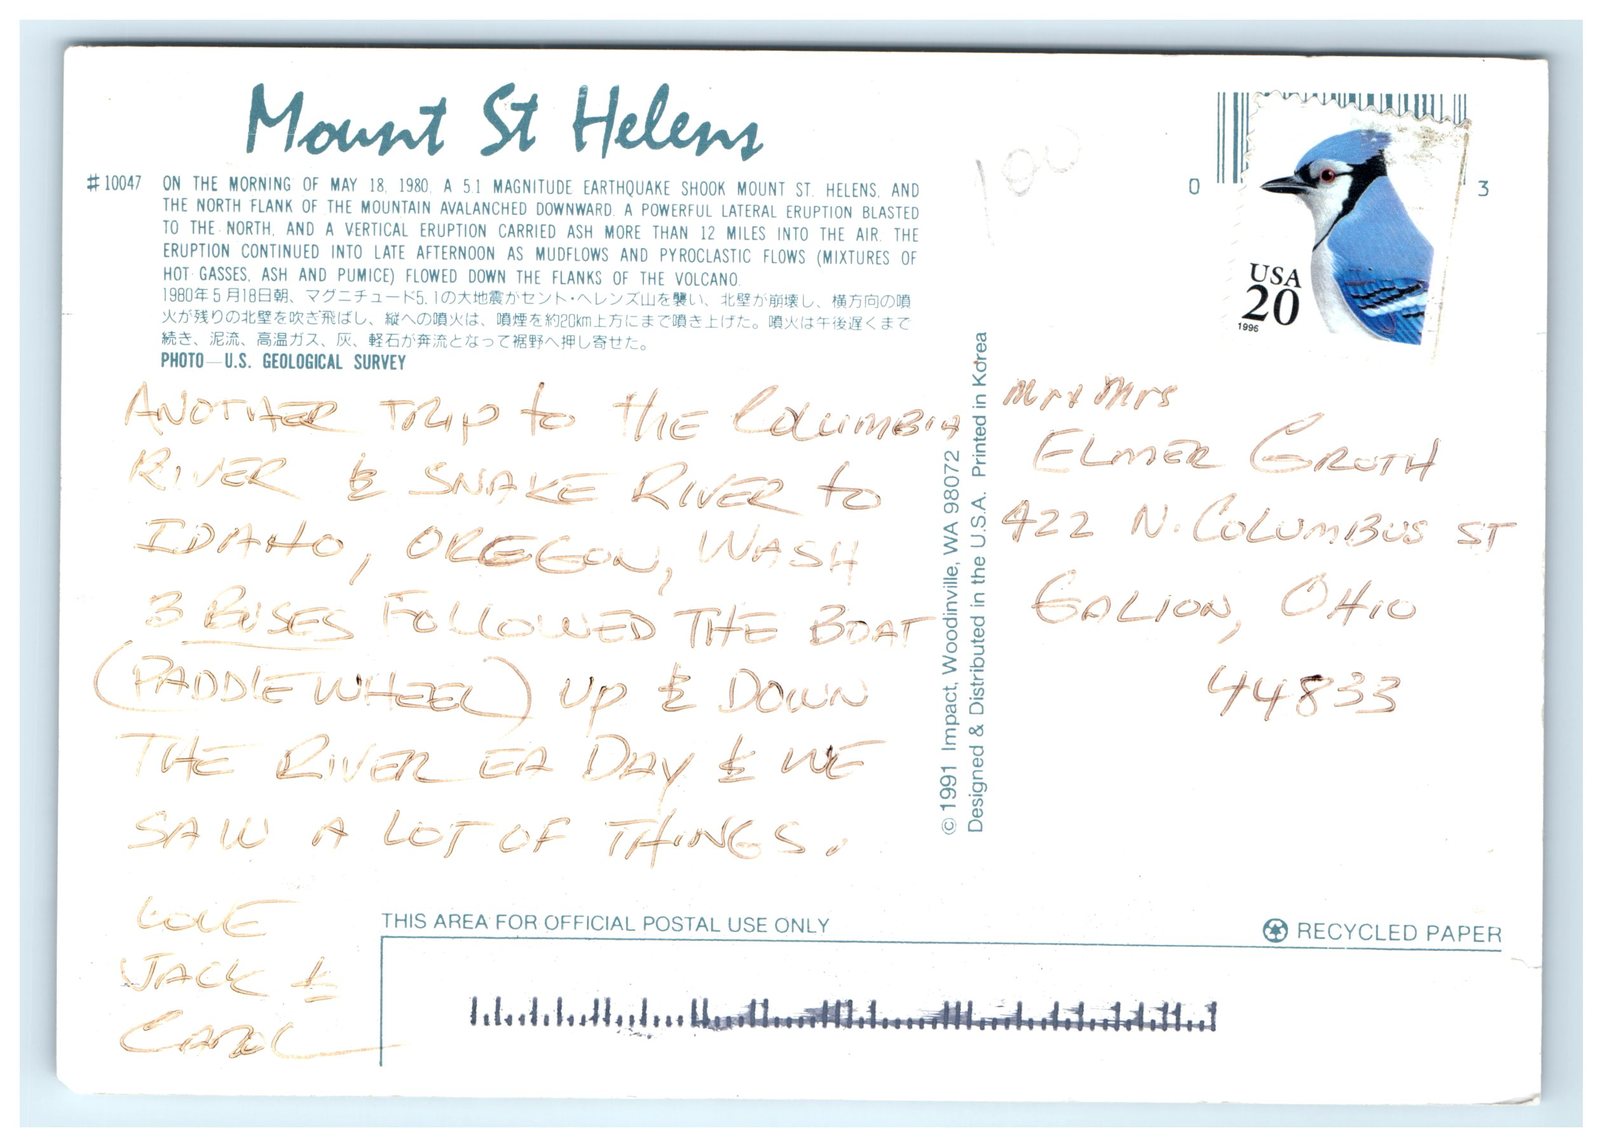 Mount St Helens
#10047 ON THE MORNING OF MAY 18, 1980, A 5.1 MAGNITUDE EARTHQUAKE SHOOK MOUNT ST. HELENS, AND
THE NORTH FLANK OF THE MOUNTAIN AVALANCHED DOWNWARD. A POWERFUL LATERAL ERUPTION BLASTED
TO THE NORTH, AND A VERTICAL ERUPTION CARRIED ASH MORE THAN 12 MILES INTO THE AIR. THE
ERUPTION CONTINUED INTO LATE AFTERNOON AS MUDFLOWS AND PYROCLASTIC FLOWS (MIXTURES OF
HOT GASSES, ASH AND PUMICE) FLOWED DOWN THE FLANKS OF THE VOLCANO.
1980年5月18日朝、マグニチュード5.1の大地震がセント・ヘレンズ山を襲い、北壁が崩壊し、横方向の噴
火が残りの北壁を吹き飛ばし、縦への噴火は、噴煙を約20km上方にまで噴き上げた。噴火は午後遅くまで
続き、泥流、高温ガス、灰、軽石が奔流となって裾野へ押し寄せた。
PHOTO—U.S. GEOLOGICAL SURVEY
ANOTHER TRIP to THE COLUMBIA
RIVER & SNAKE RIVER to
IDAHO, OREGON, WASH
3 BUSES FOLLOWED THE BOAT
(PADDLEWHEEL) UP & DOWN
THE RIVER EA DAY & WE
SAW A LOT OF THINGS.
LOVE
JACK &
CAROL
© 1991 Impact, Woodinville, WA 98072
Designed & Distributed in the U.S.A. Printed in Korea
100
0 3
USA
20
1996
Mr & Mrs
ELMER GROTH
422 N. COLUMBUS ST
GALION, OHIO
44833
THIS AREA FOR OFFICIAL POSTAL USE ONLY
RECYCLED PAPER